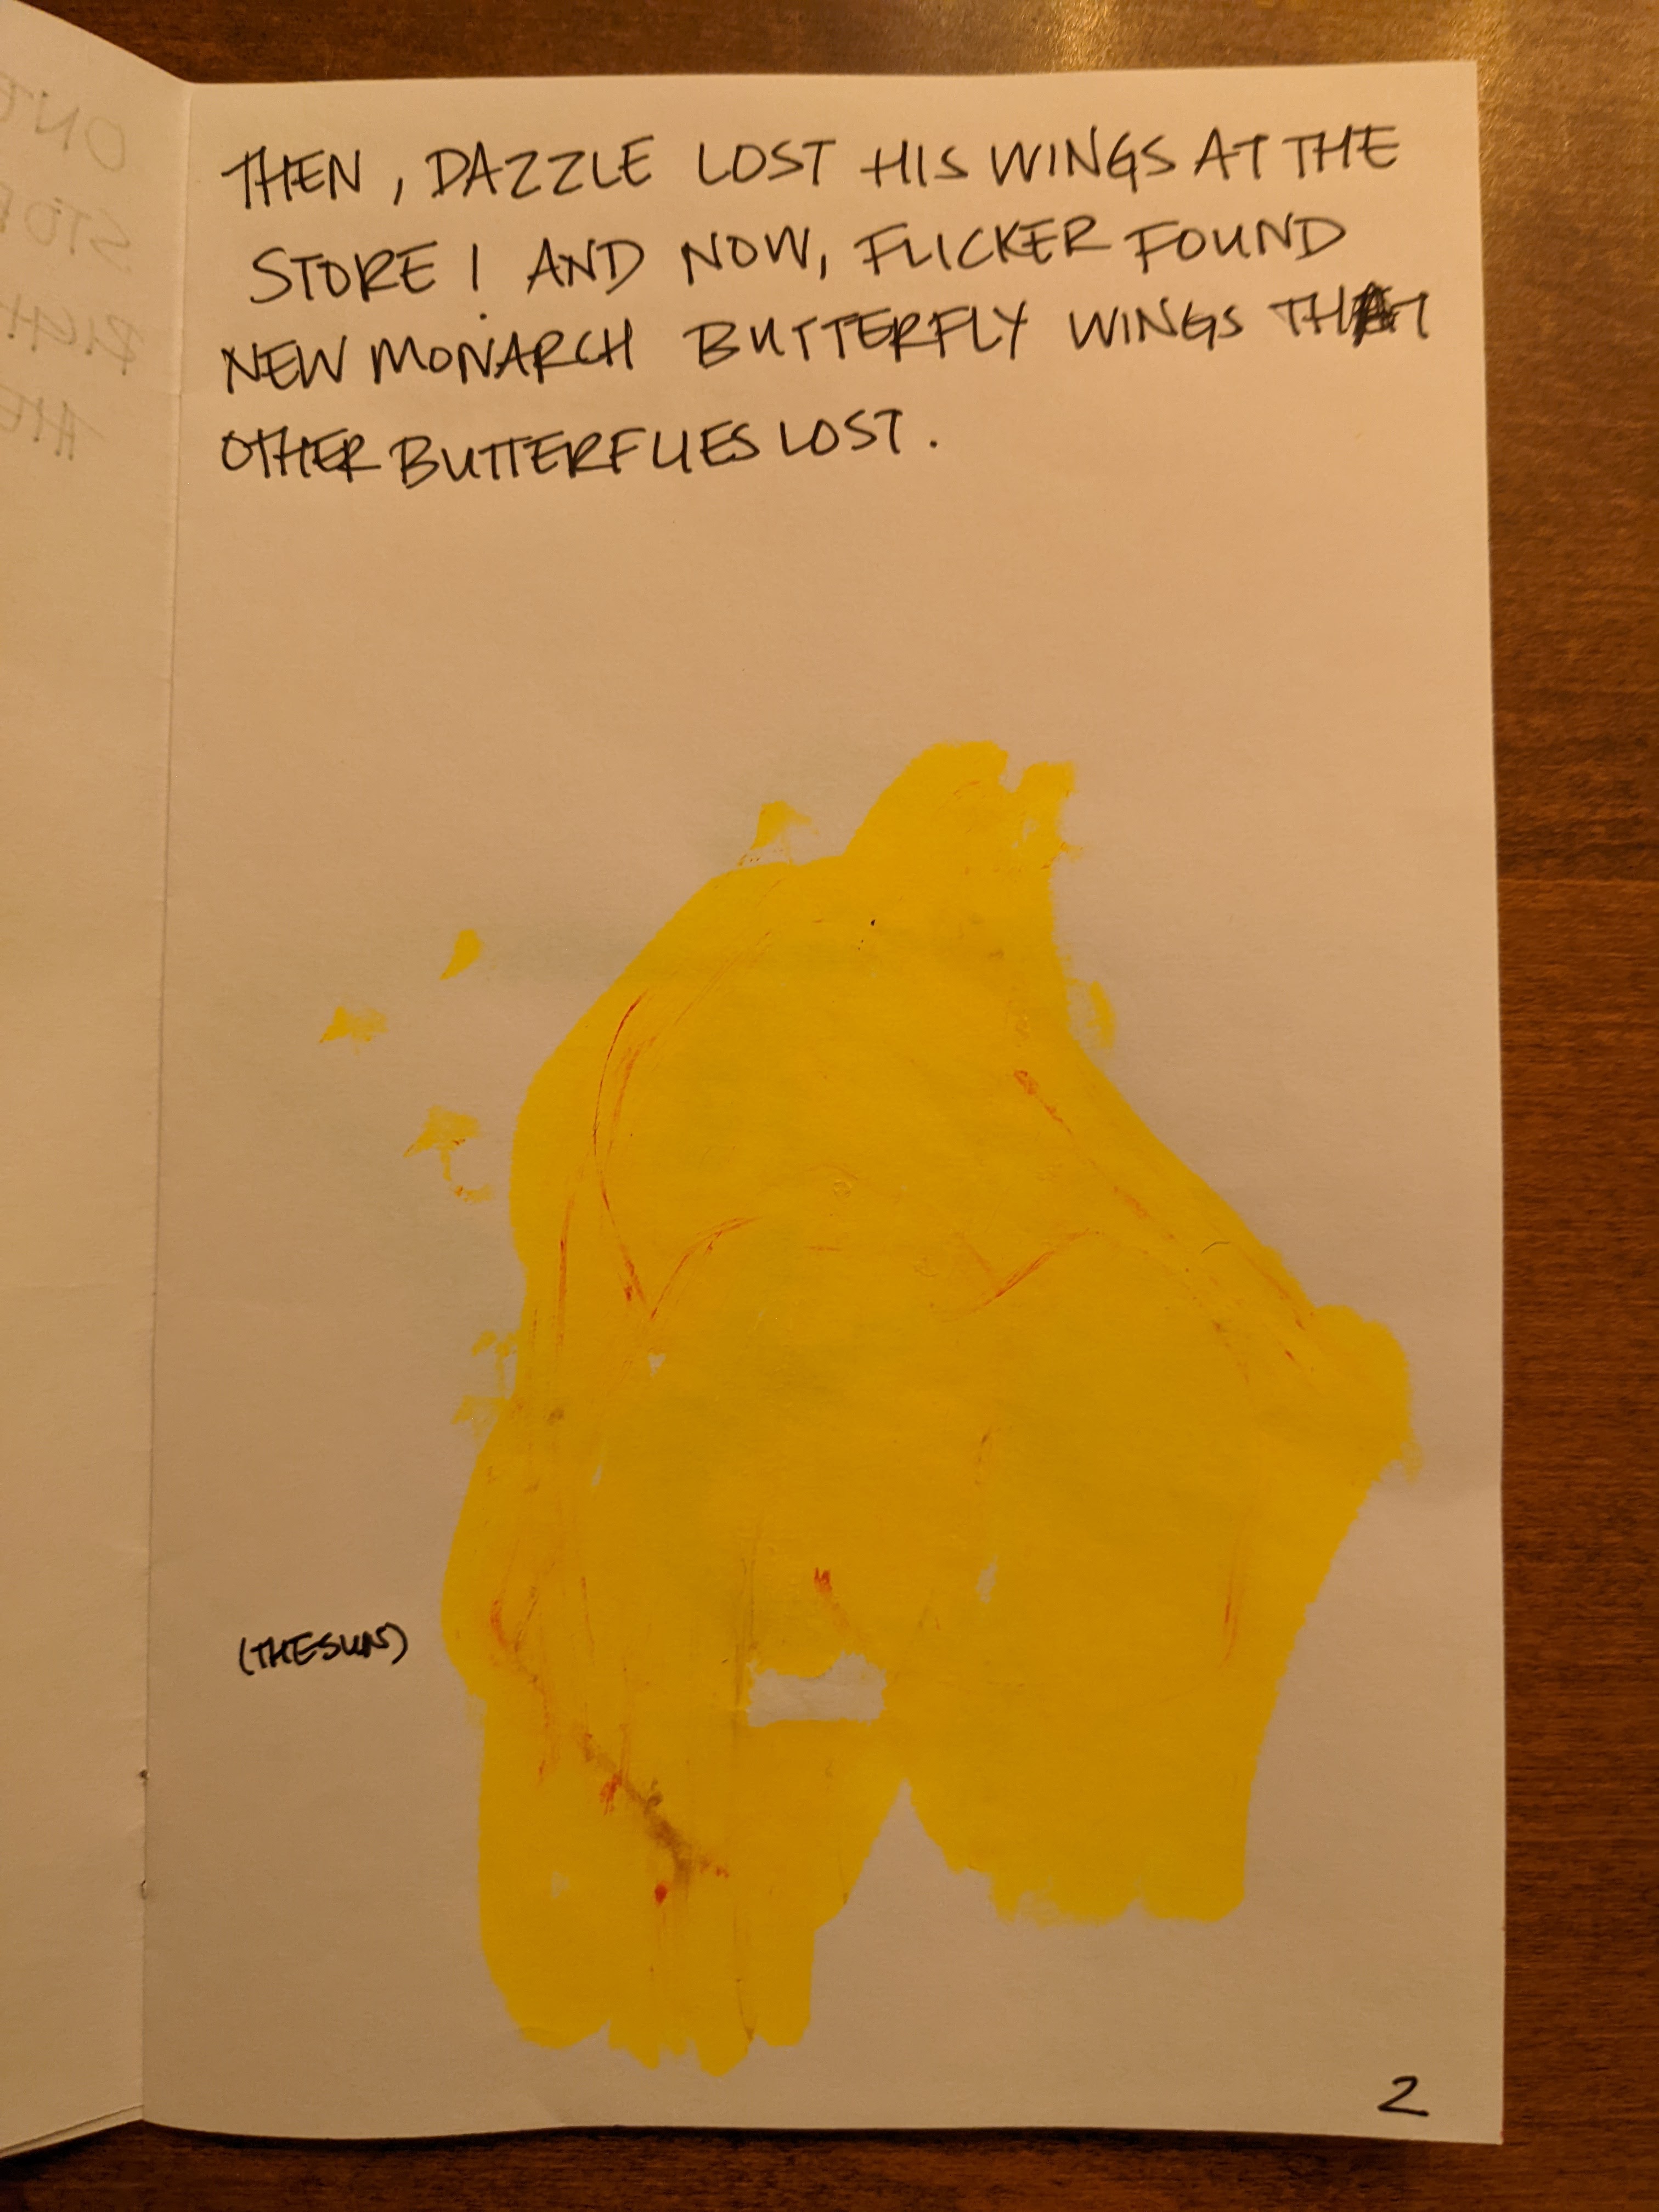 THEN, DAZZLE LOST HIS WINGS AT THE
STORE! AND NOW, FLICKER FOUND
NEW MONARCH BUTTERFLY WINGS THAT
OTHER BUTTERFLIES LOST.
(THE SUN)
2